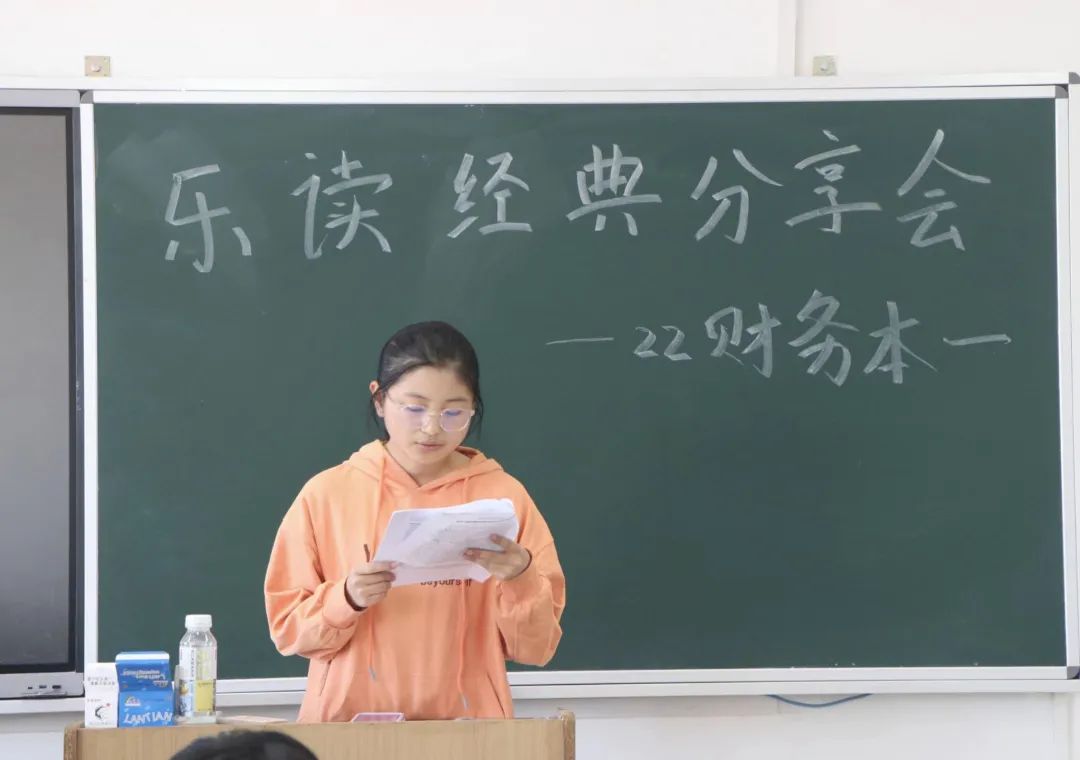 乐读经典分享会
—22财务本一
LANTIAN